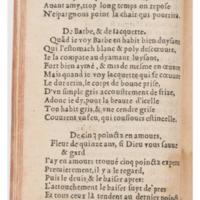 Auant amy, trop long temps on repose
N'espargnons point la chair qui pourrira.
De Barbe, & de Iacquette.
Quãd ie voy Barbe en habit bien duysant
Qui l'estomach blanc & poly descouure,
Ie la compare au dyamant luysant,
Fort bien ayné, & mis de mesme en œuure
Mais quand ie voy Iacquette qui se cœuure
Le dur tetin, le corps de bonne prise,
D'vn simple gris accoustrement de frise,
Adonc ie dy, pour la beauté d'icelle
Ton habit gris, & vne cendre grise
Couurant vn feu, qui tousiours estincelle.
De cinq poincts en amours.
Fleur de quinze ans, si Dieu vous sauue
& gard
I'ay en amours trouué cinq poincts expres
Premierement, il y a le regard,
Puis le deuis, & le baiser apres:
L'atouchement le baiser suyt de pres
Et tous ceux là tendent au dernier poinct